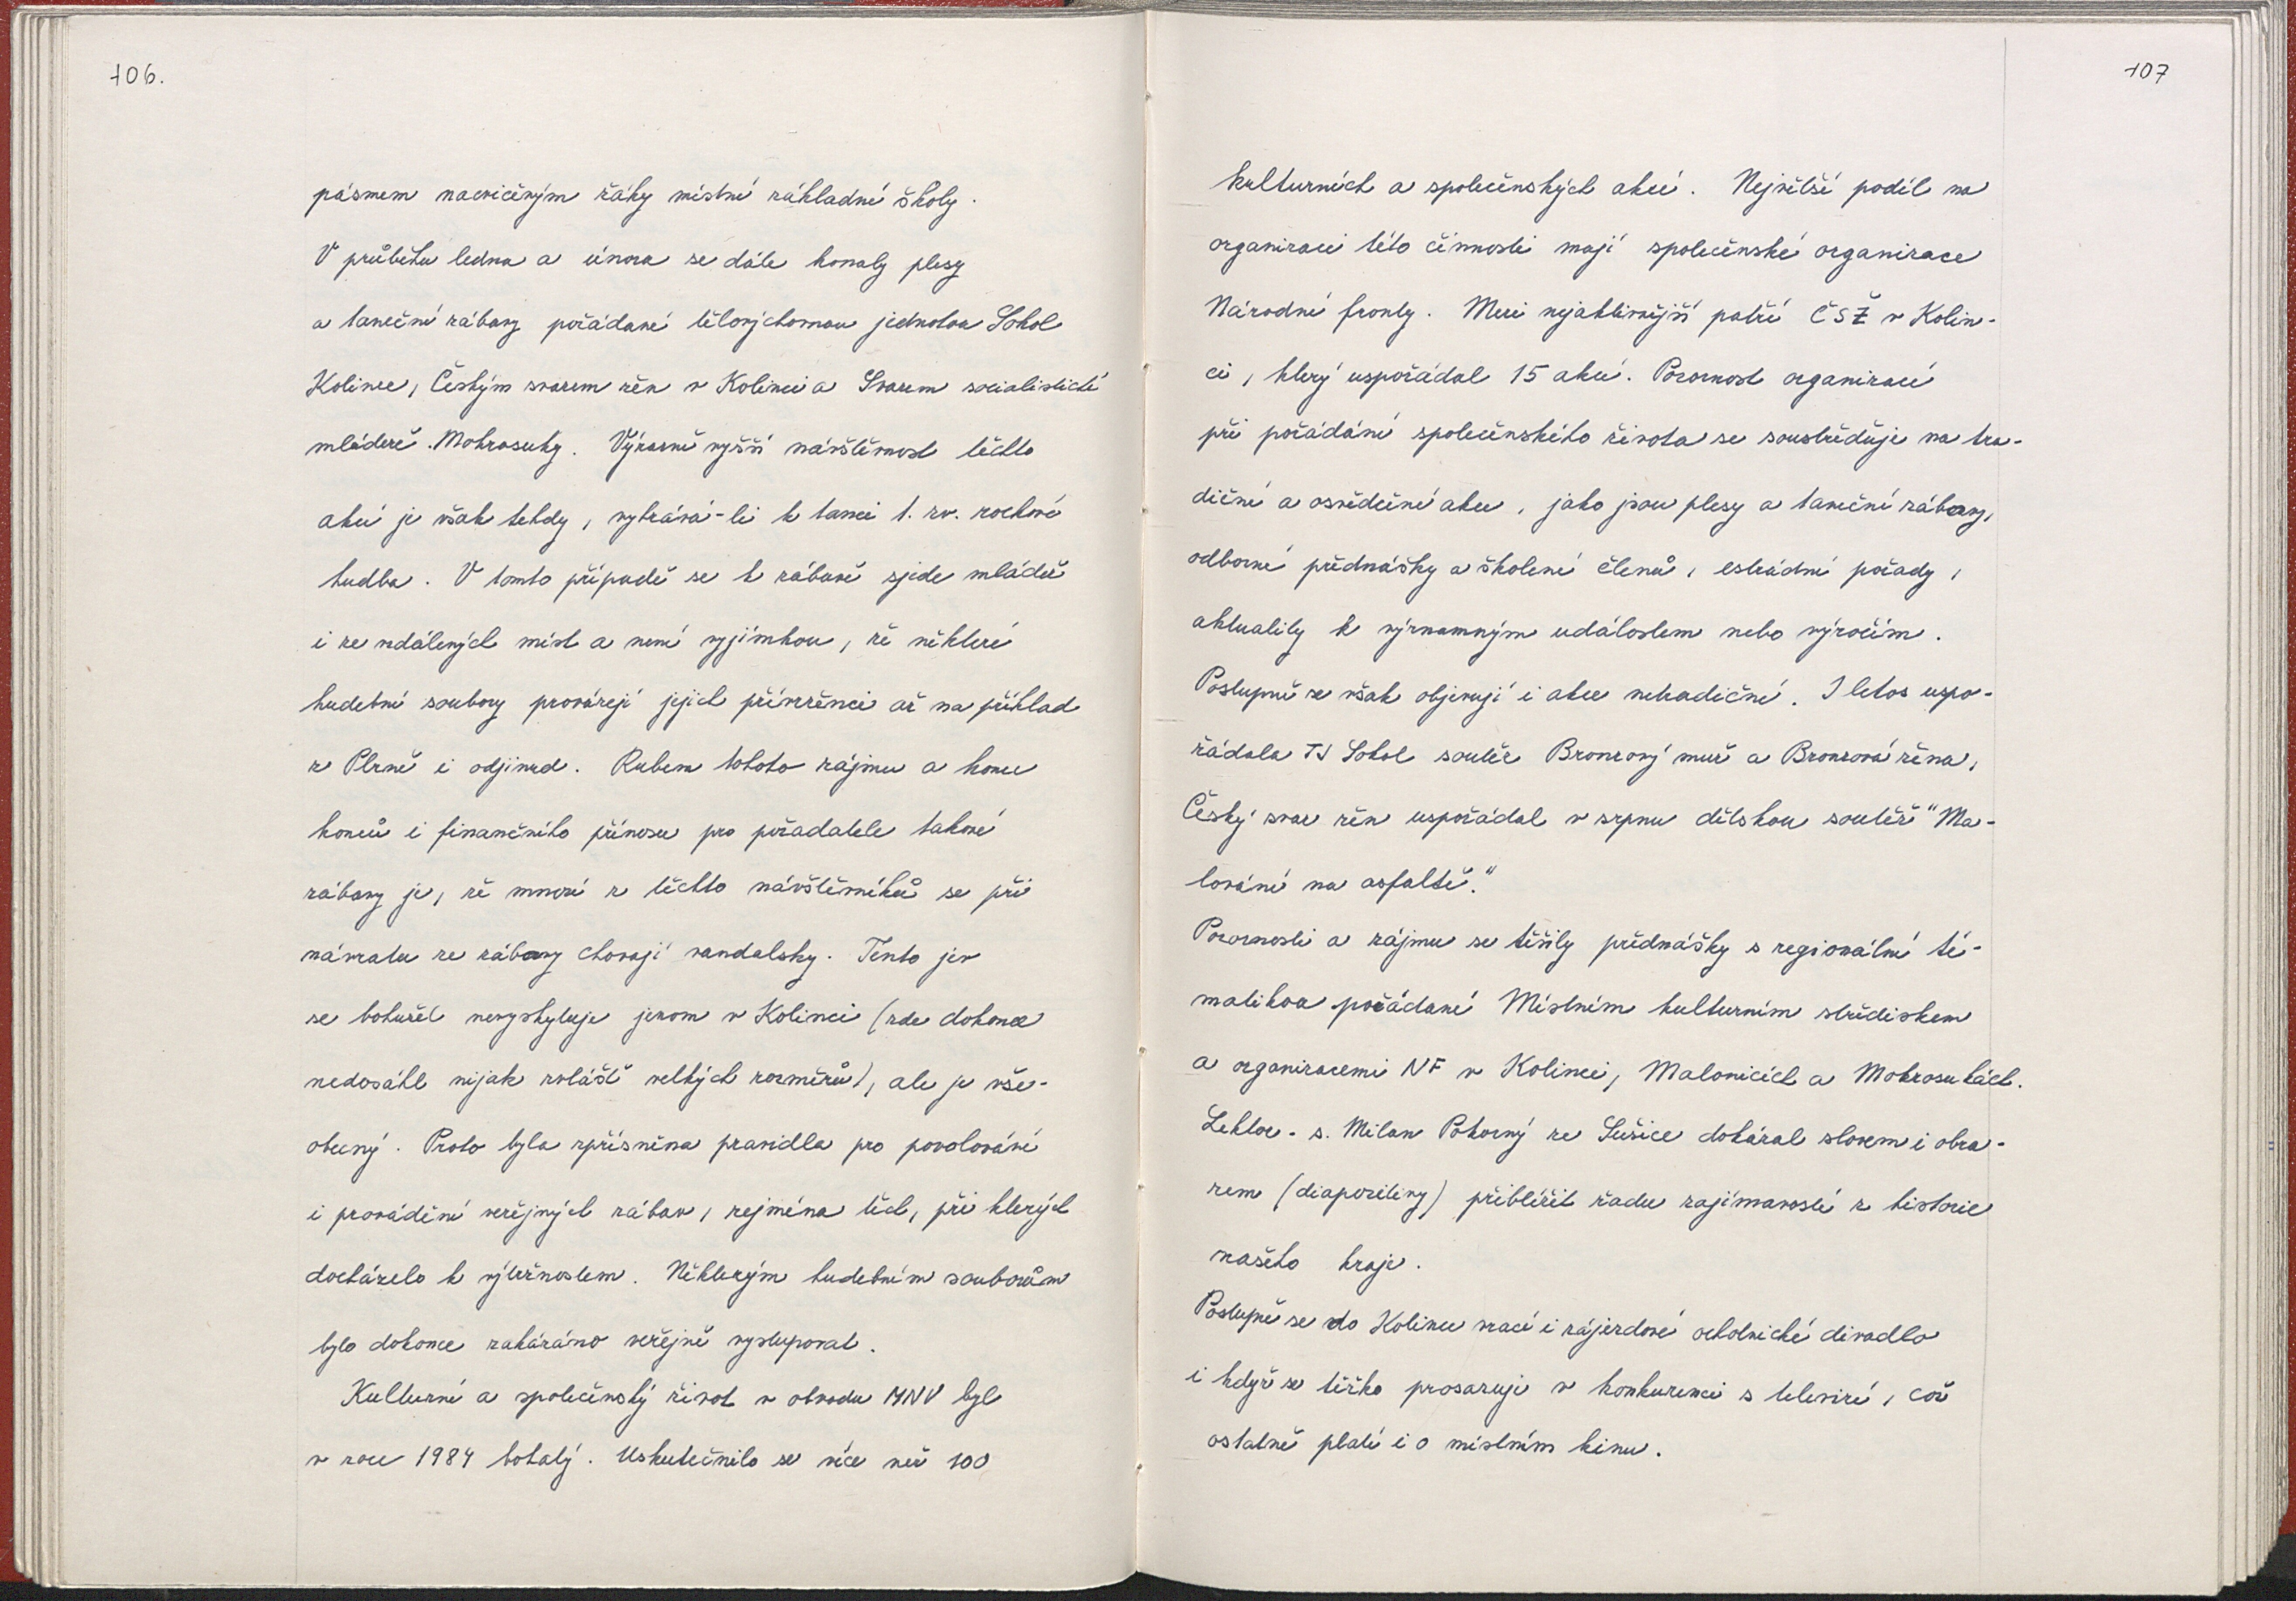 106.
pásmem nacvičeným žáky místní základní školy.
V průběhu ledna a února se dále konaly plesy
a taneční zábavy pořádané tělovýchovnou jednotou Sokol
Kolinec, Českým svazem žen v Kolinci a Svazem socialistické
mládeže. Mokrosuky. Výrazně vyšší návštěvnost těchto
akcí je však tehdy, vyhrává-li k tanci t. zv. rocková
hudba. V tomto případě se k zábavě sjede mládež
i ze vzdálených míst a není vyjímkou, že některé
hudební soubory provázejí jejich přívrženci až na příklad
z Plzně i odjinud. Rubem tohoto zájmu a konec
konců i finančního přínosu pro pořadatele takové
zábavy je, že mnozí z těchto návštěvníků se při
návratu ze zábavy chovají vandalsky. Tento jev
se bohužel nevyskytuje jenom v Kolinci (zde dokonce
nedosáhl nijak zvlášť velkých rozměrů), ale je vše-
obecný. Proto byla zpřísněna pravidla pro povolování
i provádění veřejných zábav, zejména těch, při kterých
docházelo k výtržnostem. Některým hudebním souborům
bylo dokonce zakázáno veřejně vystupovat.
Kulturní a společenský život v obvodu MNV byl
v roce 1984 bohatý. Uskutečnilo se více než 100
107
kulturních a společenských akcí. Největší podíl na
organizaci této činnosti mají společenské organizace
Národní fronty. Mezi nejaktivnější patří ČSŽ v Kolin-
ci, který uspořádal 15 akcí. Pozornost organizací
při pořádání společenského života se soustřeďuje na tra-
diční a osvědčené akce, jako jsou plesy a taneční zábavy,
odborné přednášky a školení členů, estrádní pořady,
aktuality k významným událostem nebo výročím.
Postupně se však objevují i akce netradiční. I letos uspo-
řádala TJ Sokol soutěž Bronzový muž a Bronzová žena,
Český svaz žen uspořádal v srpnu dětskou soutěž "Ma-
lování na asfaltě."
Pozornosti a zájmu se těšily přednášky s regionální té-
matikou pořádané Místním kulturním střediskem
a organizacemi NF v Kolinci, Malonicích a Mokrosukách.
Lektor - s. Milan Pokorný ze Sušice dokázal slovem i obra-
zem (diapozitivy) přiblížit řadu zajímavostí z historie
našeho kraje.
Postupně se do Kolince vrací i zájezdové ochotnické divadlo
i když se těžko prosazuje v konkurenci s televizí, což
ostatně platí i o místním kinu.